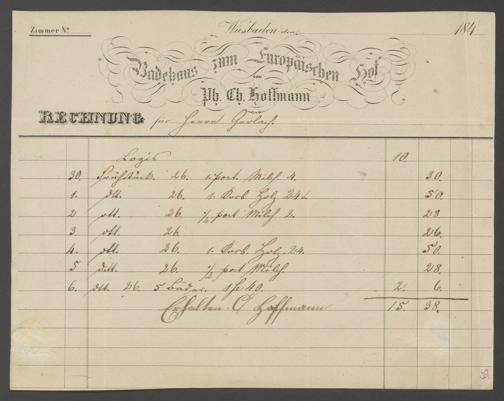 Zimmer No
Wiesbaden den 184
Badehaus zum Europäischen Hof
von
Ph. Ch. Hoffmann
RECHNUNG für Herrn Gerlach.
Logis 10.
30. Frühstück 26. 1 port Milch 4. 30.
1. dtt. 26. 1 Corb Holz 24 50.
2 dtt. 26 1/2 port Milch 2. 28
3 dtt 26 26.
4. dtt. 26. 1 Corb. Holz. 24. 50.
5 dtt. 26. 1/2 port Milch 28.
6. dtt. 26. 5 Bäder. 1 40. 2. 6.
Erhalten. Hoffmann 15. 38.